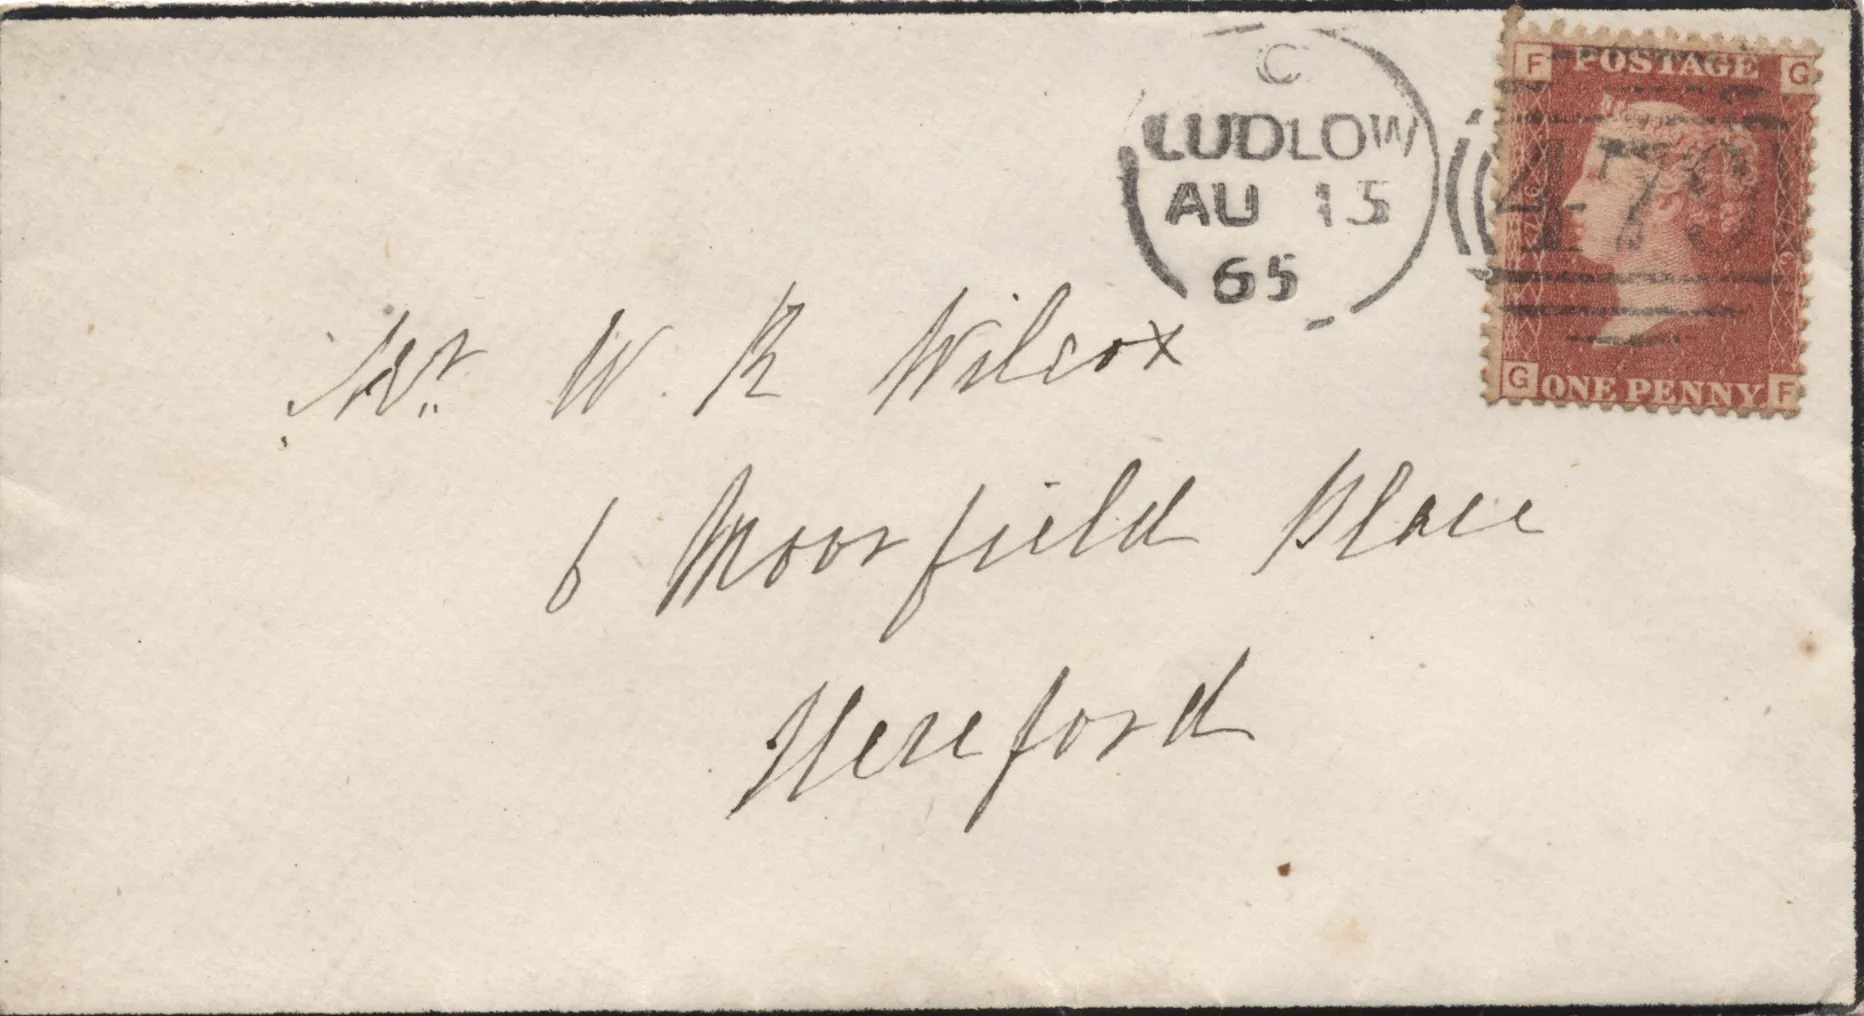 C
LUDLOW
AU 15
65
F POSTAGE G
478
G ONE PENNY F
Mr. W. R Wilcox
6 Moorfield Place
Hereford